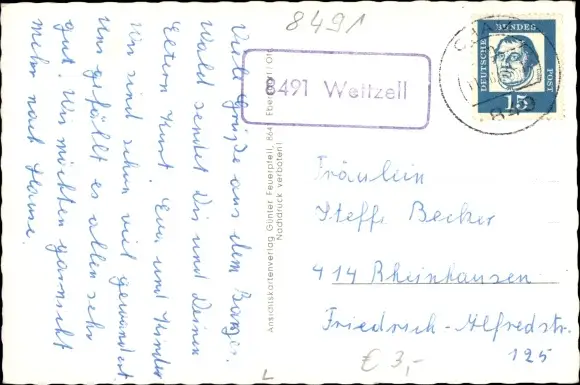 8491
Viele Grüße aus dem Bayr.
Wald sendet Dir und Deinen
Eltern Kurt, Eva und Kinder
Wir sind schon viel gewandert.
Uns gefällt es allen sehr
gut! Wir möchten garnicht
mehr nach Hause.
8491 Wettzell
Ansichtskartenverlag Günter Feuerpfeil, 864
Nachdruck verboten!
DEUTSCHE BUNDESPOST
15
849
Fräulein
Steffi Becker
414 Rheinhausen
Friedrich-Alfredstr.
125
€ 3,-